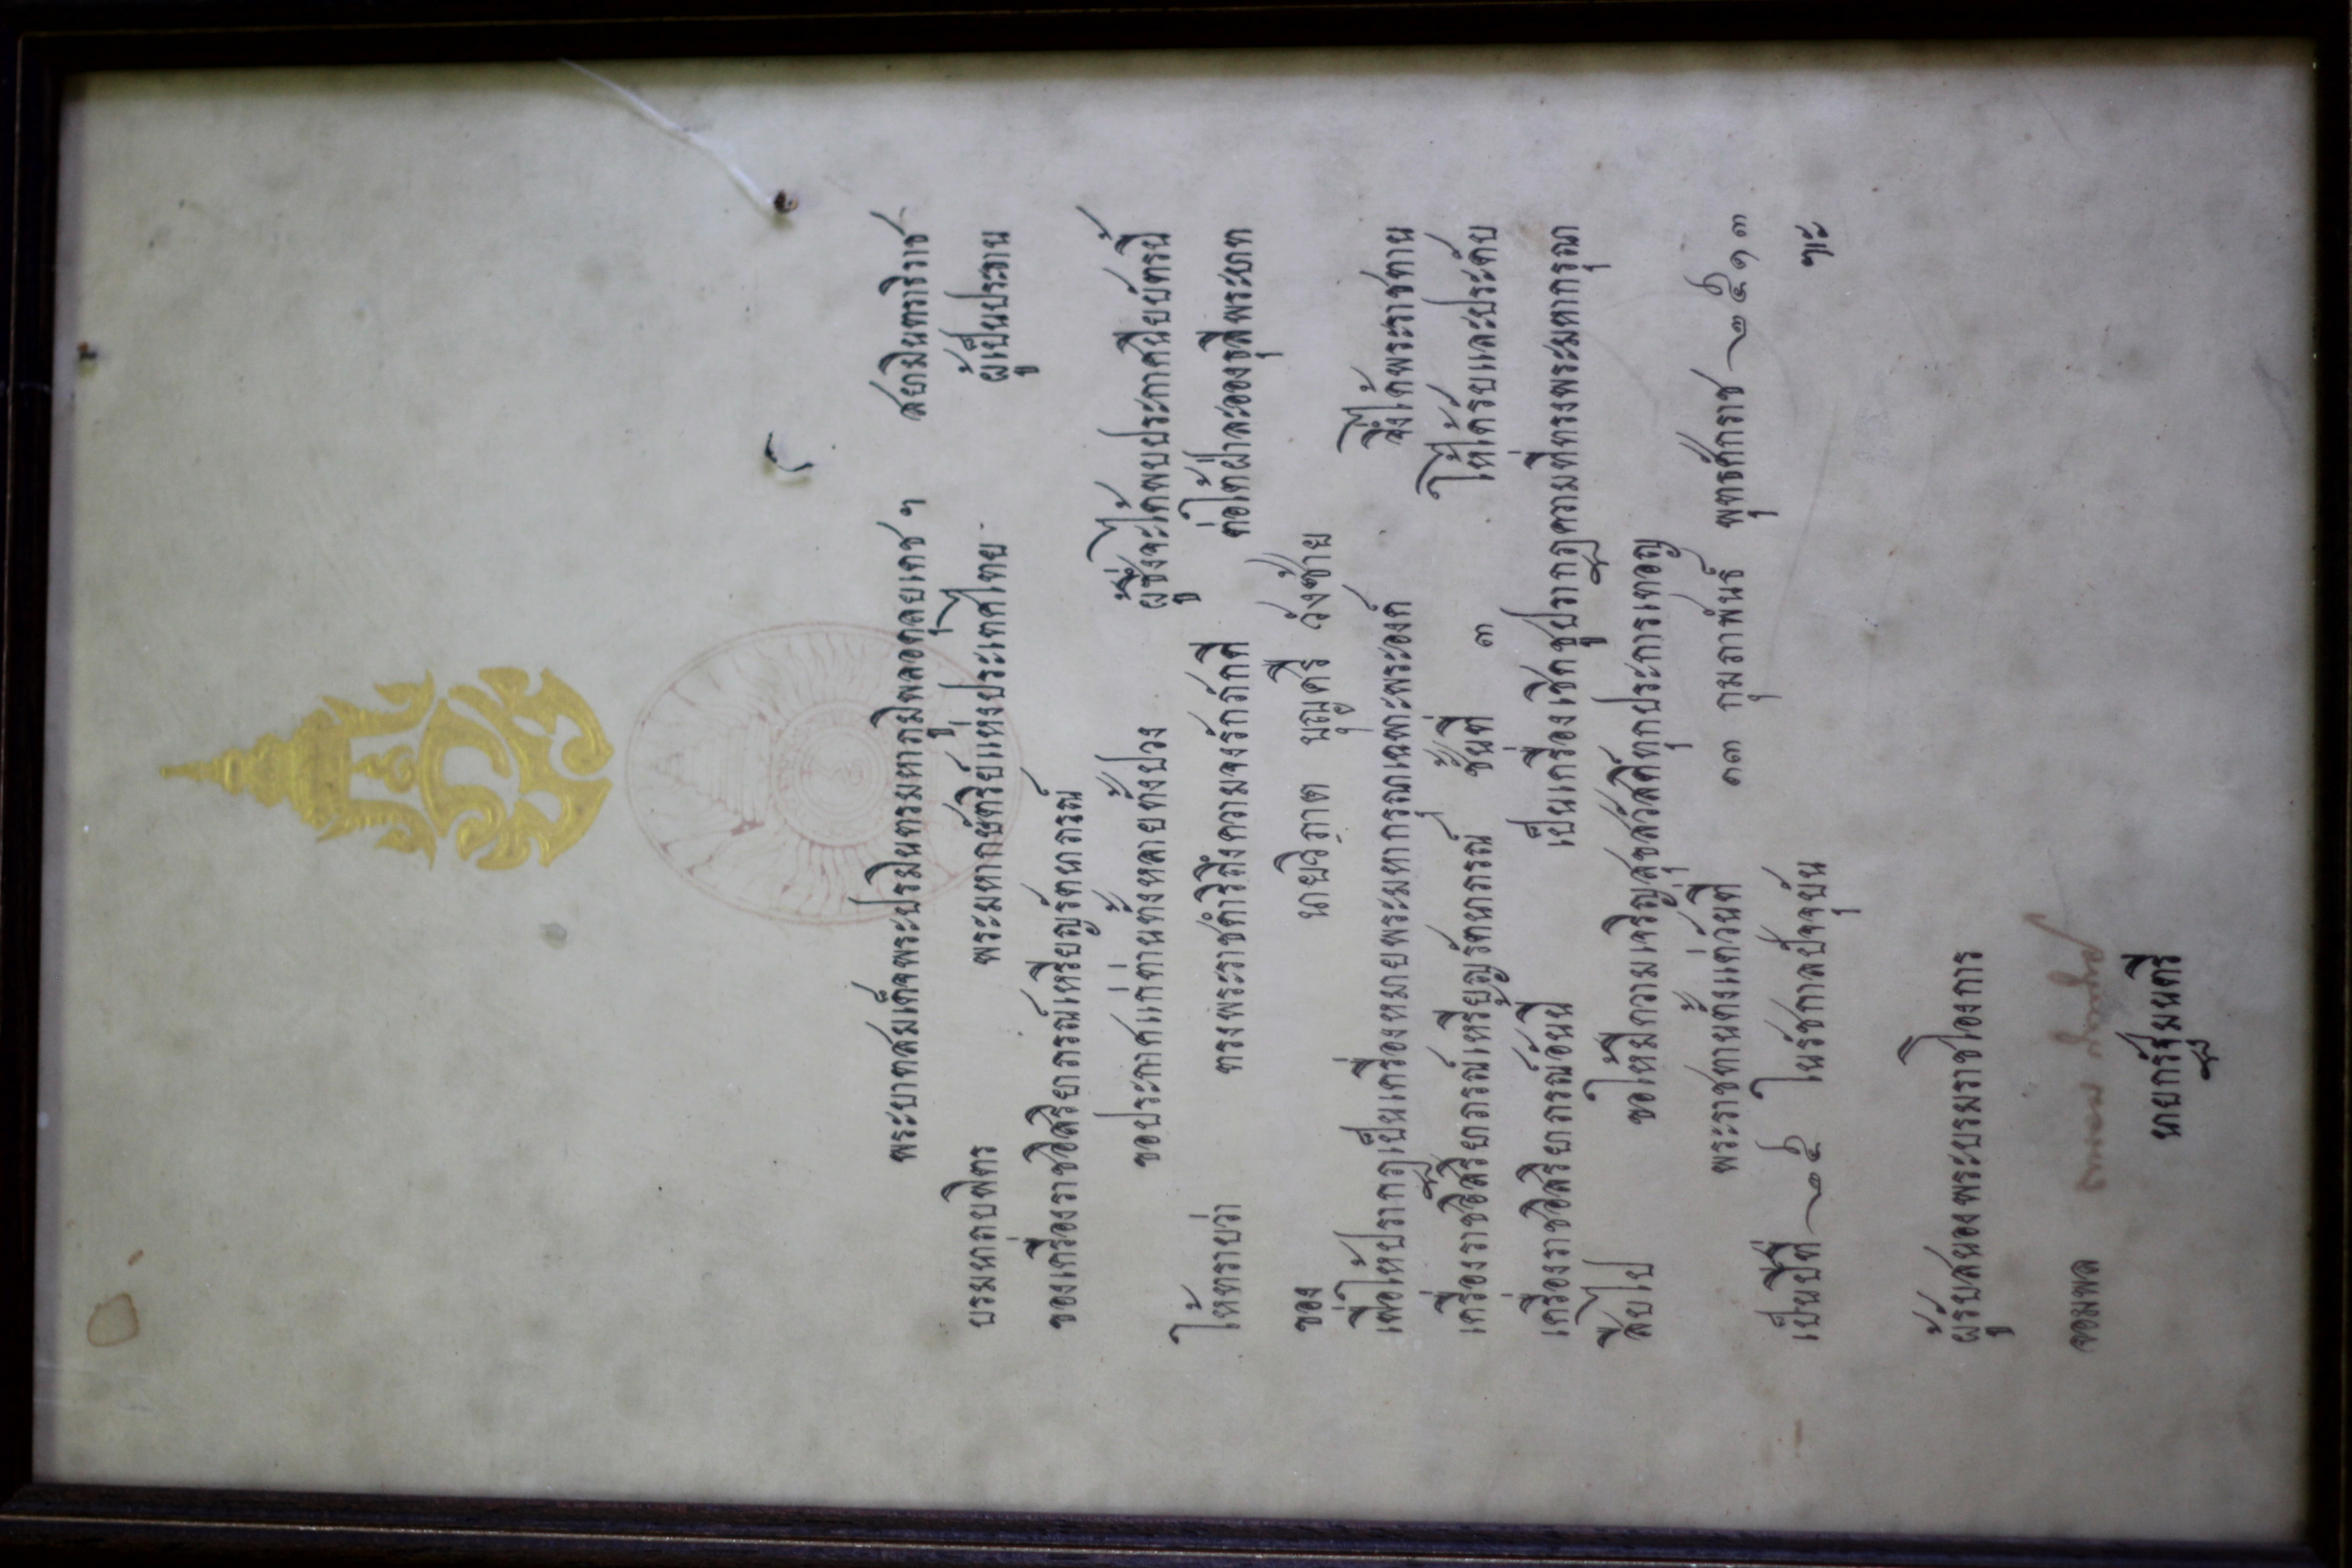 พระบาทสมเด็จพระปรมินทรมหาภูมิพลอดุลยเดช ฯ สยามินทราธิราช
บรมนาถบพิตร พระมหากษัตริย์แห่งประเทศไทย ผู้เป็นประธาน
ของเครื่องราชอิสริยาภรณ์เหรียญรัตนาภรณ์
ขอประกาศแก่ท่านทั้งหลายทั้งปวง ผู้ซึ่งจะได้พบประกาศนียบัตรนี้
ให้ทราบว่า ทรงพระราชดำริถึงความจงรักภักดี ต่อใต้ฝ่าละอองธุลีพระบาท
ของ นายวิภาต บุญศรี วังซ้าย
เพื่อให้ปรากฏเป็นเครื่องหมายพระมหากรุณาเฉพาะพระองค์ จึ่งได้พระราชทาน
เครื่องราชอิสริยาภรณ์เหรียญรัตนาภรณ์ ชั้นที่ ๓ ให้ได้รับและประดับ
เครื่องราชอิสริยาภรณ์อันนี้ เป็นเครื่องเชิดชูปรากฏความที่ทรงพระมหากรุณา
สืบไป ขอให้มีความเจริญสุขสวัสดิ์ทุกประการเทอญ
พระราชทานตั้งแต่วันที่ ๑๓ กุมภาพันธ์ พุทธศักราช ๒๕๑๓
เป็นปีที่ ๒๕ ในรัชกาลปัจจุบัน ฯะ
ผู้รับสนองพระบรมราชโองการ
จอมพล
นายกรัฐมนตรี